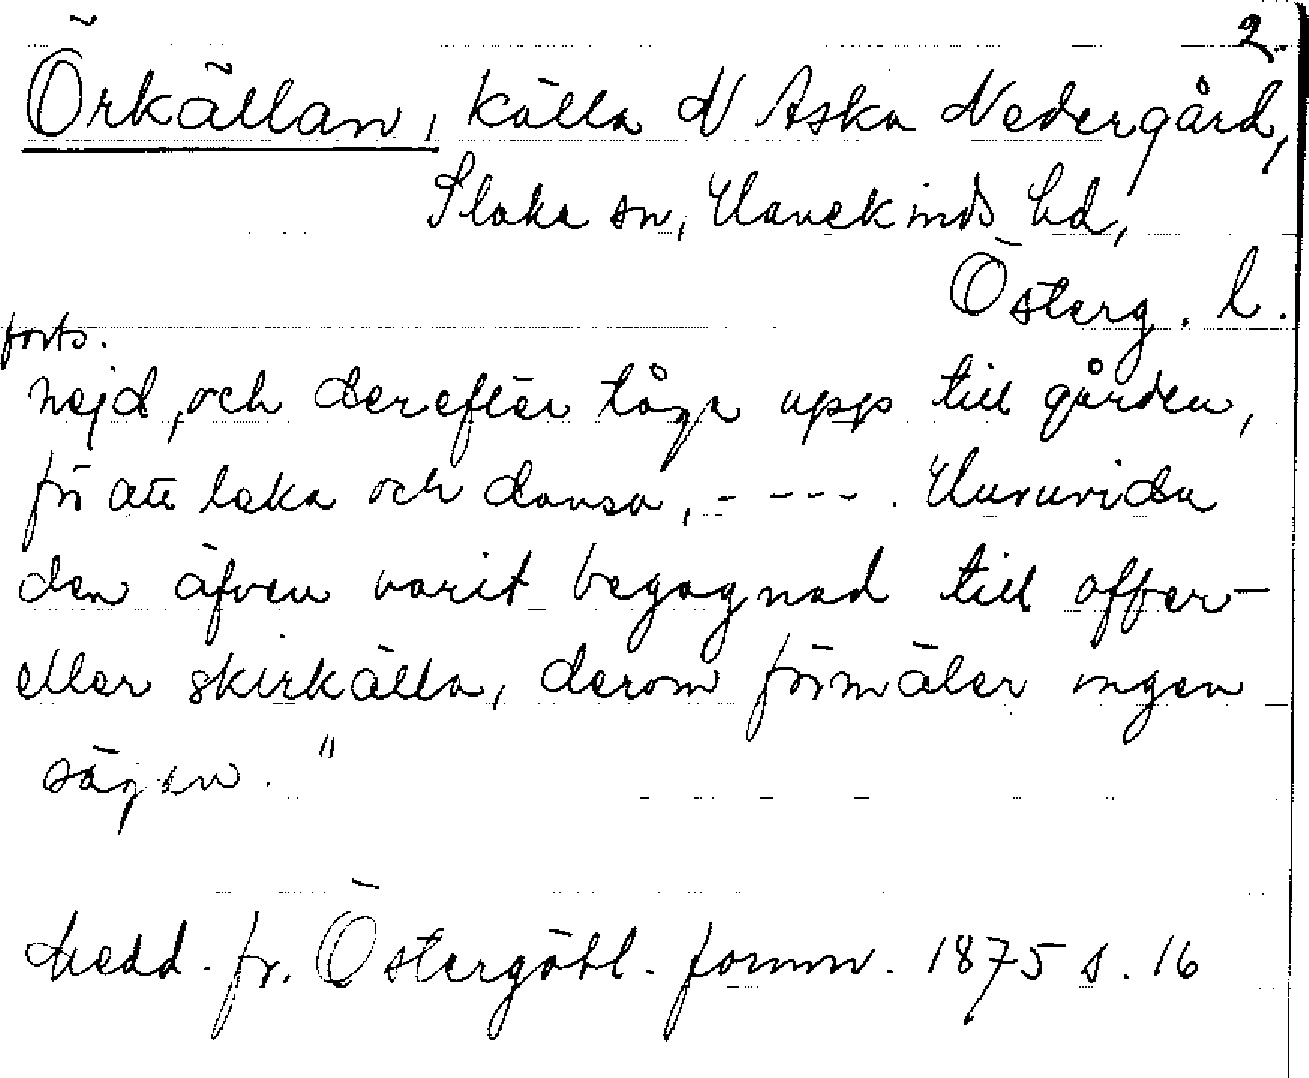 2.
Örkällan, källa N Aska Nedergård,
Slaka sn, Hanekinds hd,
Österg. l.
forts.
nejd, och derefter tåga upp till gården,
för att leka och dansa, - - - - . Huruvida
den äfven varit begagnad till offer-
eller skirkälla, derom förmäler ingen
sägen."
Medd. fr. Östergötl. fornm. 1875 s. 16